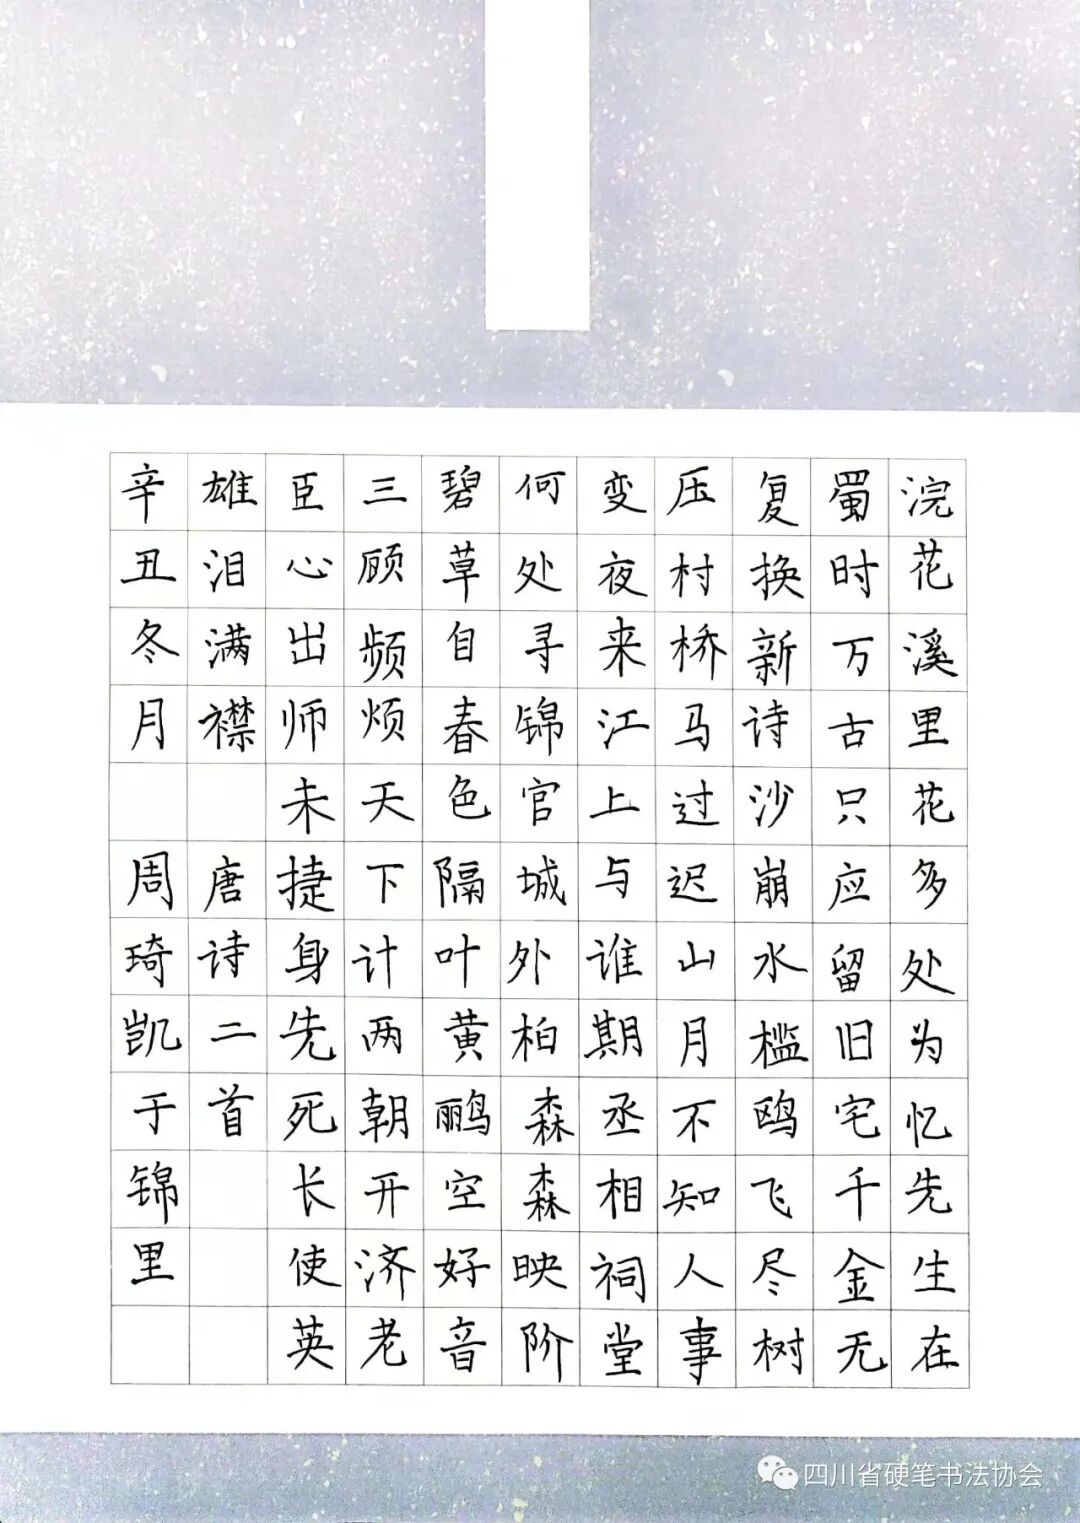 浣花溪里花多处为忆先生在
蜀时万古只应留旧宅千金无
复换新诗沙崩水槛鸥飞尽树
压村桥马过迟山月不知人事
变夜来江上与谁期丞相祠堂
何处寻锦官城外柏森森映阶
碧草自春色隔叶黄鹂空好音
三顾频烦天下计两朝开济老
臣心出师未捷身先死长使英
雄泪满襟 唐诗二首
辛丑冬月 周琦凯于锦里
四川省硬笔书法协会